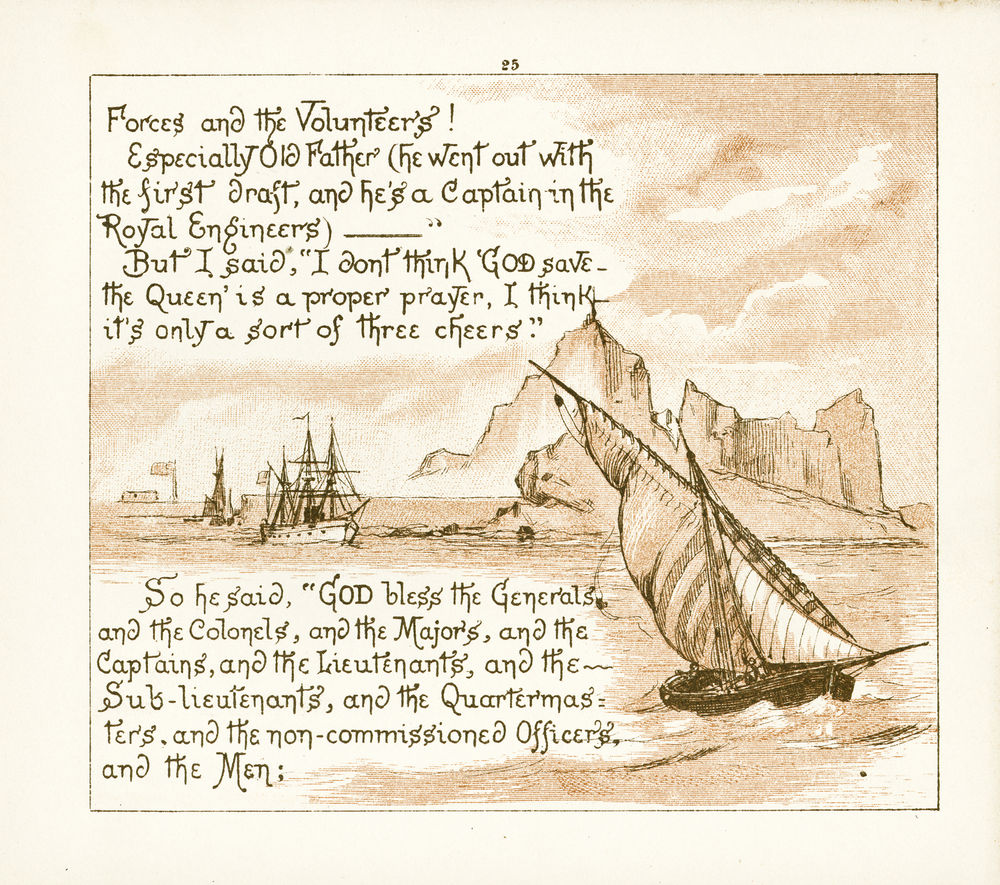 25
Forces and the Volunteers!
Especially Old Father (he went out with
the first draft, and he's a Captain in the
Royal Engineers) ——— "
But I said, "I dont think 'GOD save-
the Queen' is a proper prayer, I think
it's only a sort of three cheers."
So he said, "GOD bless the Generals,
and the Colonels, and the Majors, and the
Captains, and the Lieutenants, and the~
Sub-lieutenants, and the Quartermas=
ters, and the non-commissioned Officers,
and the Men;